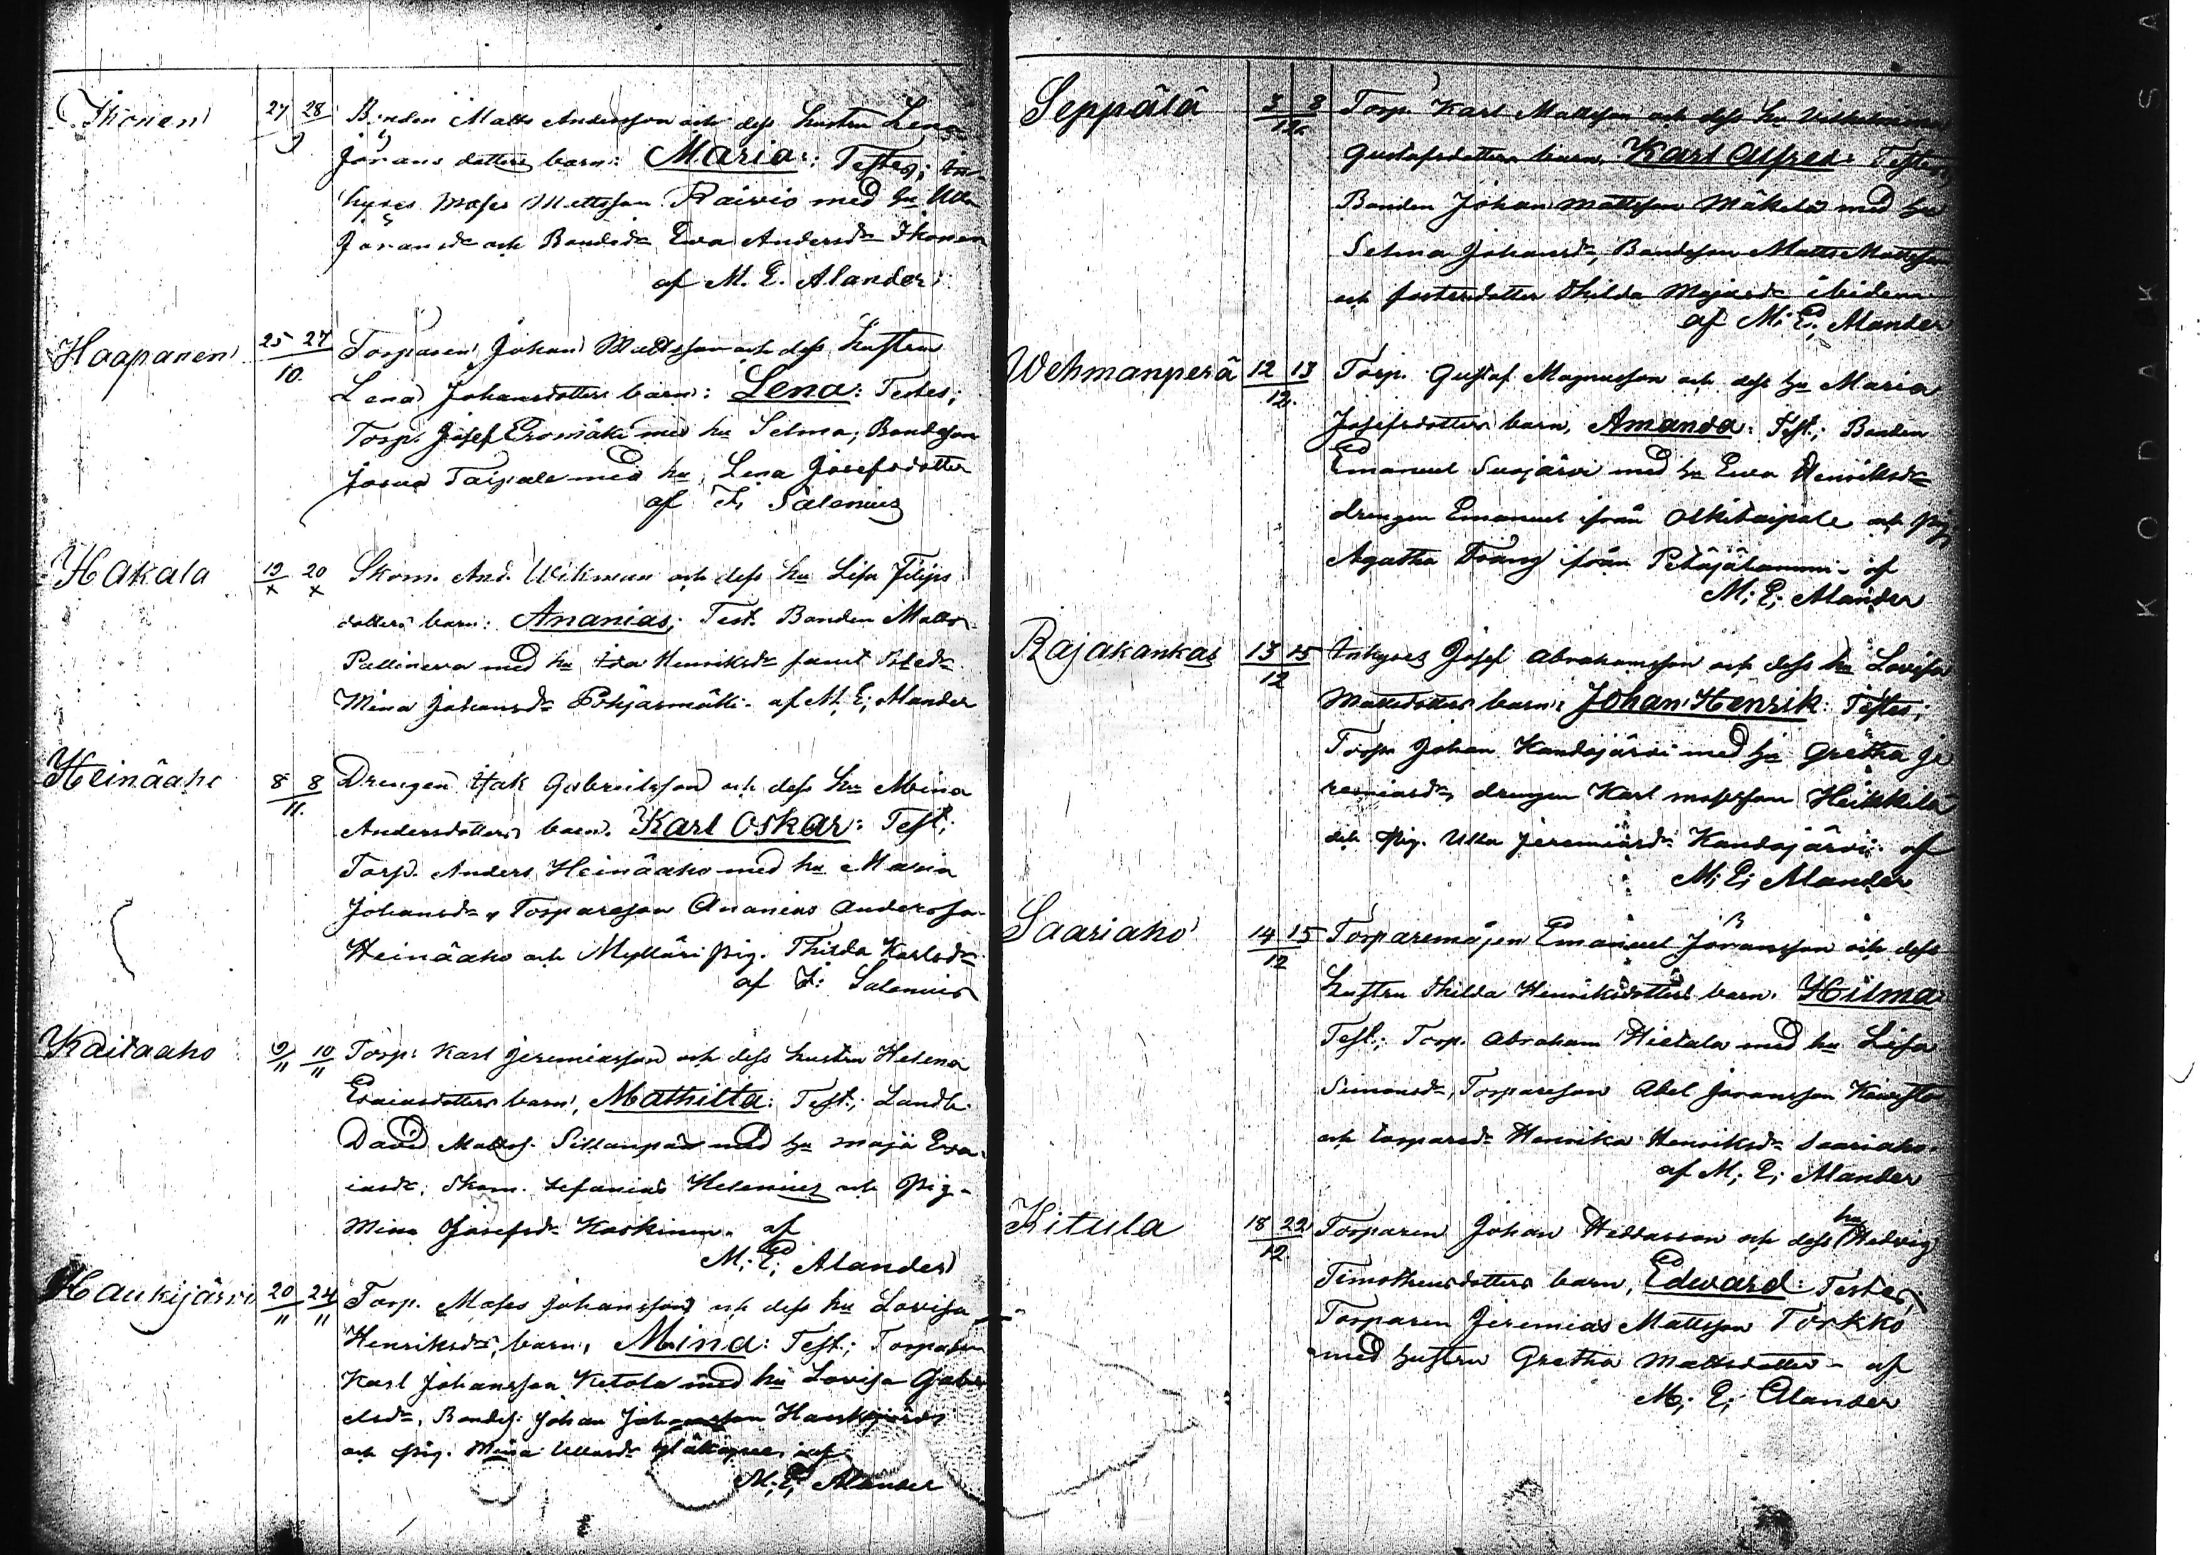 Ikonen 27 28 Bonden Matts Andersson och dess hustru Lena
9 Jöransdotters barn: Maria: Testes; in-
hyses Moses Mattsson Raivio med hu Ulla
Jöransdr och Bondedr Eva Andersdr Ikonen
af M. E. Alander
Haapanen 25 27 Torparen Johan Mattsson och dess hustru
10. Lena Johansdotters barn: Lena: Testes;
Torp. Josef Eromäki med hu Selma, Bondeson
Josua Taipale med hu Lena Josefsdotter
af F. Salenius
Hakala 19 20 Skom. And. Wikman och dess hu Lisa Filips
x x dotters barn: Ananias; Test. Bonden Matts
Pallineva med hu Ida Henriksdr samt
Mina Johansdr af M. E; Alander
Heinäaho 8 8 Drengen Isak Gabrielsson och dess hu Mina
11. Andersdotters barn. Karl Oskar: Test;
Torp. Anders Heinäaho med hu Maria
Johansdr, Torpareson Ananias Andersson
Heinäaho och Mylläri pig. Thilda Karlsdr
af F: Salenius
Kaitaaho 9 10 Torp: Karl Jeremiasson och dess hustru Helena
11 11 Esaiasdotters barn, Mathilta: Test; Landb.
David Matts. Sillanpää med hu Maja Esa-
iasdr. Skom. Sefanias Helenius och Pig-
Mina Josefsdr Koskinen. af
M; E; Alander
Haukijärvi 20 24 Torp. Moses Johansson och dess hu Lovisa
11 11 Henriksdrs barn, Mina: Test; Torparen
Karl Johansson Ketola med hu Lovisa Gabri
elsdr, Bondes. Johan Johansson Haukijärvi
och pig. Mina af
M; E; Alander
Seppälä 3 8 Torp. Karl Mattsson och dess hu Vilhelmina
12. Gustafsdotters barn, Karl Alfred: Testes,
Bonden Johan Mattsson Mäkelä med hu
Selma Johansdr, Bondeson Matts Mattsson
och fosterdotter Thilda Majasdr ibidem
af M; E; Alander
Wehmanperä 12 13 Torp. Gustaf Magnusson och dess hu Maria
12. Josefsdotters barn, Amanda: Test; Bonden
Emanuel Suojärvi med hu Eva Henriksdr
drengen Emanuel från Alkitaipale och pig.
Agatha från Petäjälammi - af
M; E; Alander
Rajakankas 13 15 Inhyses Josef Abrahamsson och dess hu Lovisa
12 Mattsdotters barn: Johan Henrik: Testes,
Torp. Johan Kandojärvi med hu Gretha Je
remiasdr, drengen Karl Mosesson Heikkilä
och Pig. Ulla Jeremiasdr Kandojärvi. af
M; E; Alander
Saariaho 14 15 Torparemågen Emanuel Jöransson och dess
12 hustru Thilda Henriksdotters barn. Hilma
Test; Torp. Abraham Hietala med hu Lisa
Simonsdr, Torpareson Abel Jöransson Kivisto
och torparedr Henrika Henriksdr Saariaho.
af M; E; Alander
Kitula 18 22 Torparen Johan och dess hu Hedvig
12. Timotheusdotters barn, Edward: Testes,
Torparen Jeremias Mattsson Törkkö
med hustru Gretha Mattsdotter - af
M; E; Alander
KODAK SA